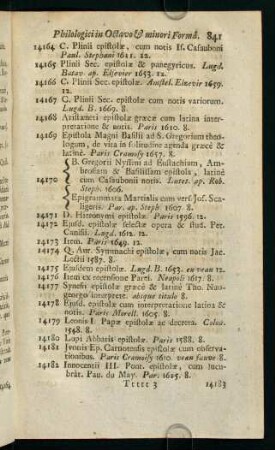 Philologici in Octavo & minori Formâ. 841
14164 C. Plinii epistolæ, cum notis If. Casauboni
Paul. Stephani 1611. 12.
14165 Plinii Sec. epistolæ & panegyricus. Lugd.
Batav. ap. Elzevir 1653. 12.
14166 C. Plinii Sec. epistolæ. Amstel. Elzevir 1659.
12.
14167 C. Plinii Sec. epistolæ cum notis variorum.
Lugd. B. 1669. 8.
14168 Aristæneti epistolæ græcè cum latina inter-
pretatione & notis. Paris 1610. 8.
14169 Epistola Magni Basilii ad S. Gregorium theo-
logum, de vita in solitudine agenda græcè &
latinè. Paris Cramoisy 1657. 8.
B. Gregorii Nysseni ad Eustathiam, Am-
brosiam & Basilissam epistola,
14170 cum Casauboni notis. Lutet. ap. Rob.
Steph. 1606.
Epigrammata Martialis cum vers. Jos. Sca-
ligeris. Par. ap. Steph 1607. 8.
14171 D. Hieronymi epistolæ. Paris 1596. 12.
14172 Ejusd. epistolæ selectæ opera & stud. Pet.
Canisii. Lugd. 1612. 12.
14173 Item. Paris 1649. 12.
14174 Q. Aur. Symmachi epistolæ, cum notis Jac.
Lectii 1587. 8.
14175 Ejusdem epistolæ. Lugd. B. 1653. en veau 12.
14176 Item ex recensione Parei. Neapoli 1617. 8.
14177 Synesii epistolæ græcè & latinè Tho. Nao-
georgo interpret. absque titulo 8.
14178 Ejusd. epistolæ cum interpretatione latina &
notis. Paris Morell. 1605. 8.
14179 Leonis I. Papæ epistolæ ac decreta. Colon.
1548. 8.
14180 Lupi Abbatis epistolæ. Paris 1588. 8.
14181 Ivonis Ep. Carnotensis epistolæ cum observa-
tionibus. Paris Cramoisy 1610. veau fauve 8.
14182 Innocentii III. Pont. epistolæ, cum lucu-
brat. Pau. du May. Par. 1625. 8.
Ttttt 3 14183